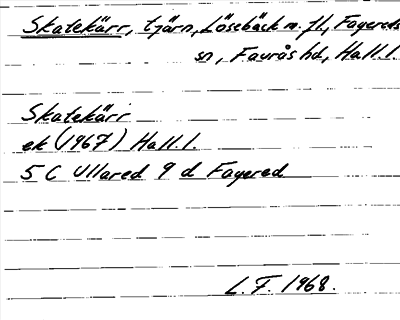 Skatekärr, tjärn, Lösebäck m. fl., Fagereds
sn, Faurås hd, Hall.l.
Skatekärr
ek (1967) Hall.l.
5 C Ullared 9 d Fagered
L.F. 1968.